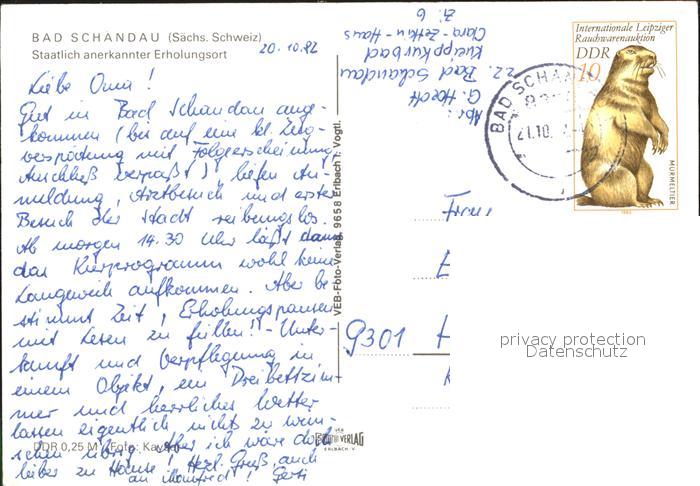 BAD SCHANDAU (Sächs. Schweiz)
Staatlich anerkannter Erholungsort
20.10.82
Liebe Oma!
Gut in Bad Schandau ange-
kommen (bis auf eine kl. Zug-
verspätung mit Folgeerscheinung
Anschluß verpaßt) liefen An-
meldung, Arztbesuch und erster
Besuch der Stadt reibungslos.
Ab morgen 14.30 Uhr läßt dann
das Kurprogramm wohl keine
Langeweile aufkommen. Aber be-
stimmt Zeit, Erholungspausen
mit Lesen zu füllen! - Unter-
kunft und Verpflegung in
einem Objekt, ein Dreibettzim-
mer und herrliches Wetter
lassen eigentlich nichts zu wün-
schen übrig. Aber ich wäre doch
lieber zu Hause! Herzl. Gruß, auch
an Manfred! Gerti
DDR 0,25 M Foto: Kay
VEB-Foto-Verlag, 9658 Erlbach i. Vogtl.
VERLAG
ERLBACH V.
Abs.:
G.
z.Z. Bad Schandau
Kneippkurbad
Clara-Zetkin-Haus
Zi. 6
BAD SCHAN
21.10.
Internationale Leipziger
Rauchwarenauktion
DDR
10
MURMELTIER
1982
9301
privacy protection
Datenschutz